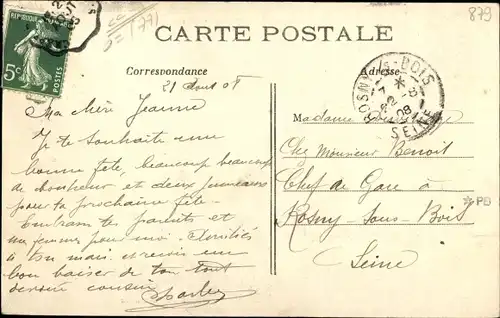 879
CARTE POSTALE
Correspondance
Adresse
RÉPUBLIQUE
5c
POSTES
ROSNY-S-BOIS
22-8
08
SEINE
21 Aout 08
Ma chère Jeanne
Je te souhaite une
bonne fête, beaucoup beaucoup
de bonheur et deux
pour ta prochaine fête
tes parents et
pour moi. Amitiés
à ton mari. et reçois un
bon baiser de ton tout
dévoué cousin
Charles
Madame
Chez Monsieur Benoit
Chef de Gare à
Rosny sous Bois
Seine
PB